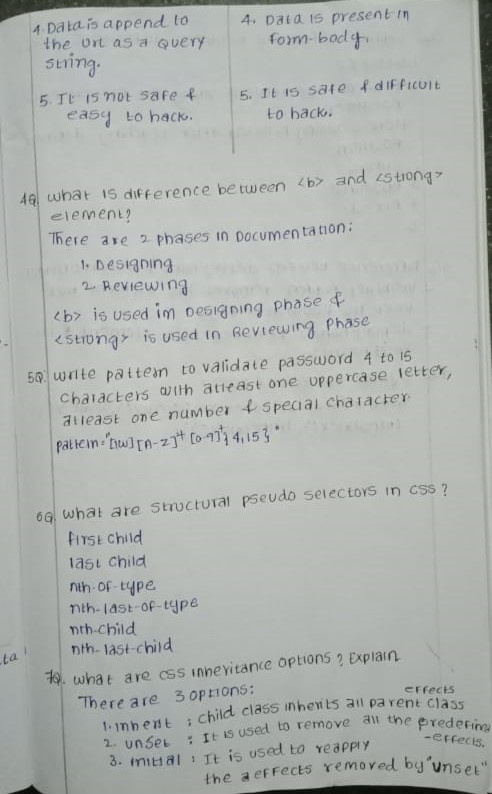 4. Data is append to
the url as a query
string.
5. It is not safe &
easy to hack.
4. Data is present in
form-body.
5. It is safe & difficult
to hack.
4Q. what is difference between <b> and <strong>
element?
There are 2 phases in Documentation:
1. Designing
2. Reviewing
<b> is used im Designing phase &
<strong> is used in Reviewing Phase
5Q. write pattern to validate password 4 to 15
characters with atleast one uppercase letter,
atleast one number & special character
6Q. what are structural pseudo selectors in css?
first child
last child
nth-of-type
nth-last-of-type
nth-child
nth-last-child
ta
7Q. what are css inheritance options? Explain
There are 3 options:
1. inherit : child class inherits all parent class effects
2. unset : It is used to remove all the predefined
-effects.
3. initial : It is used to reapply
the aeffects removed by "unset"